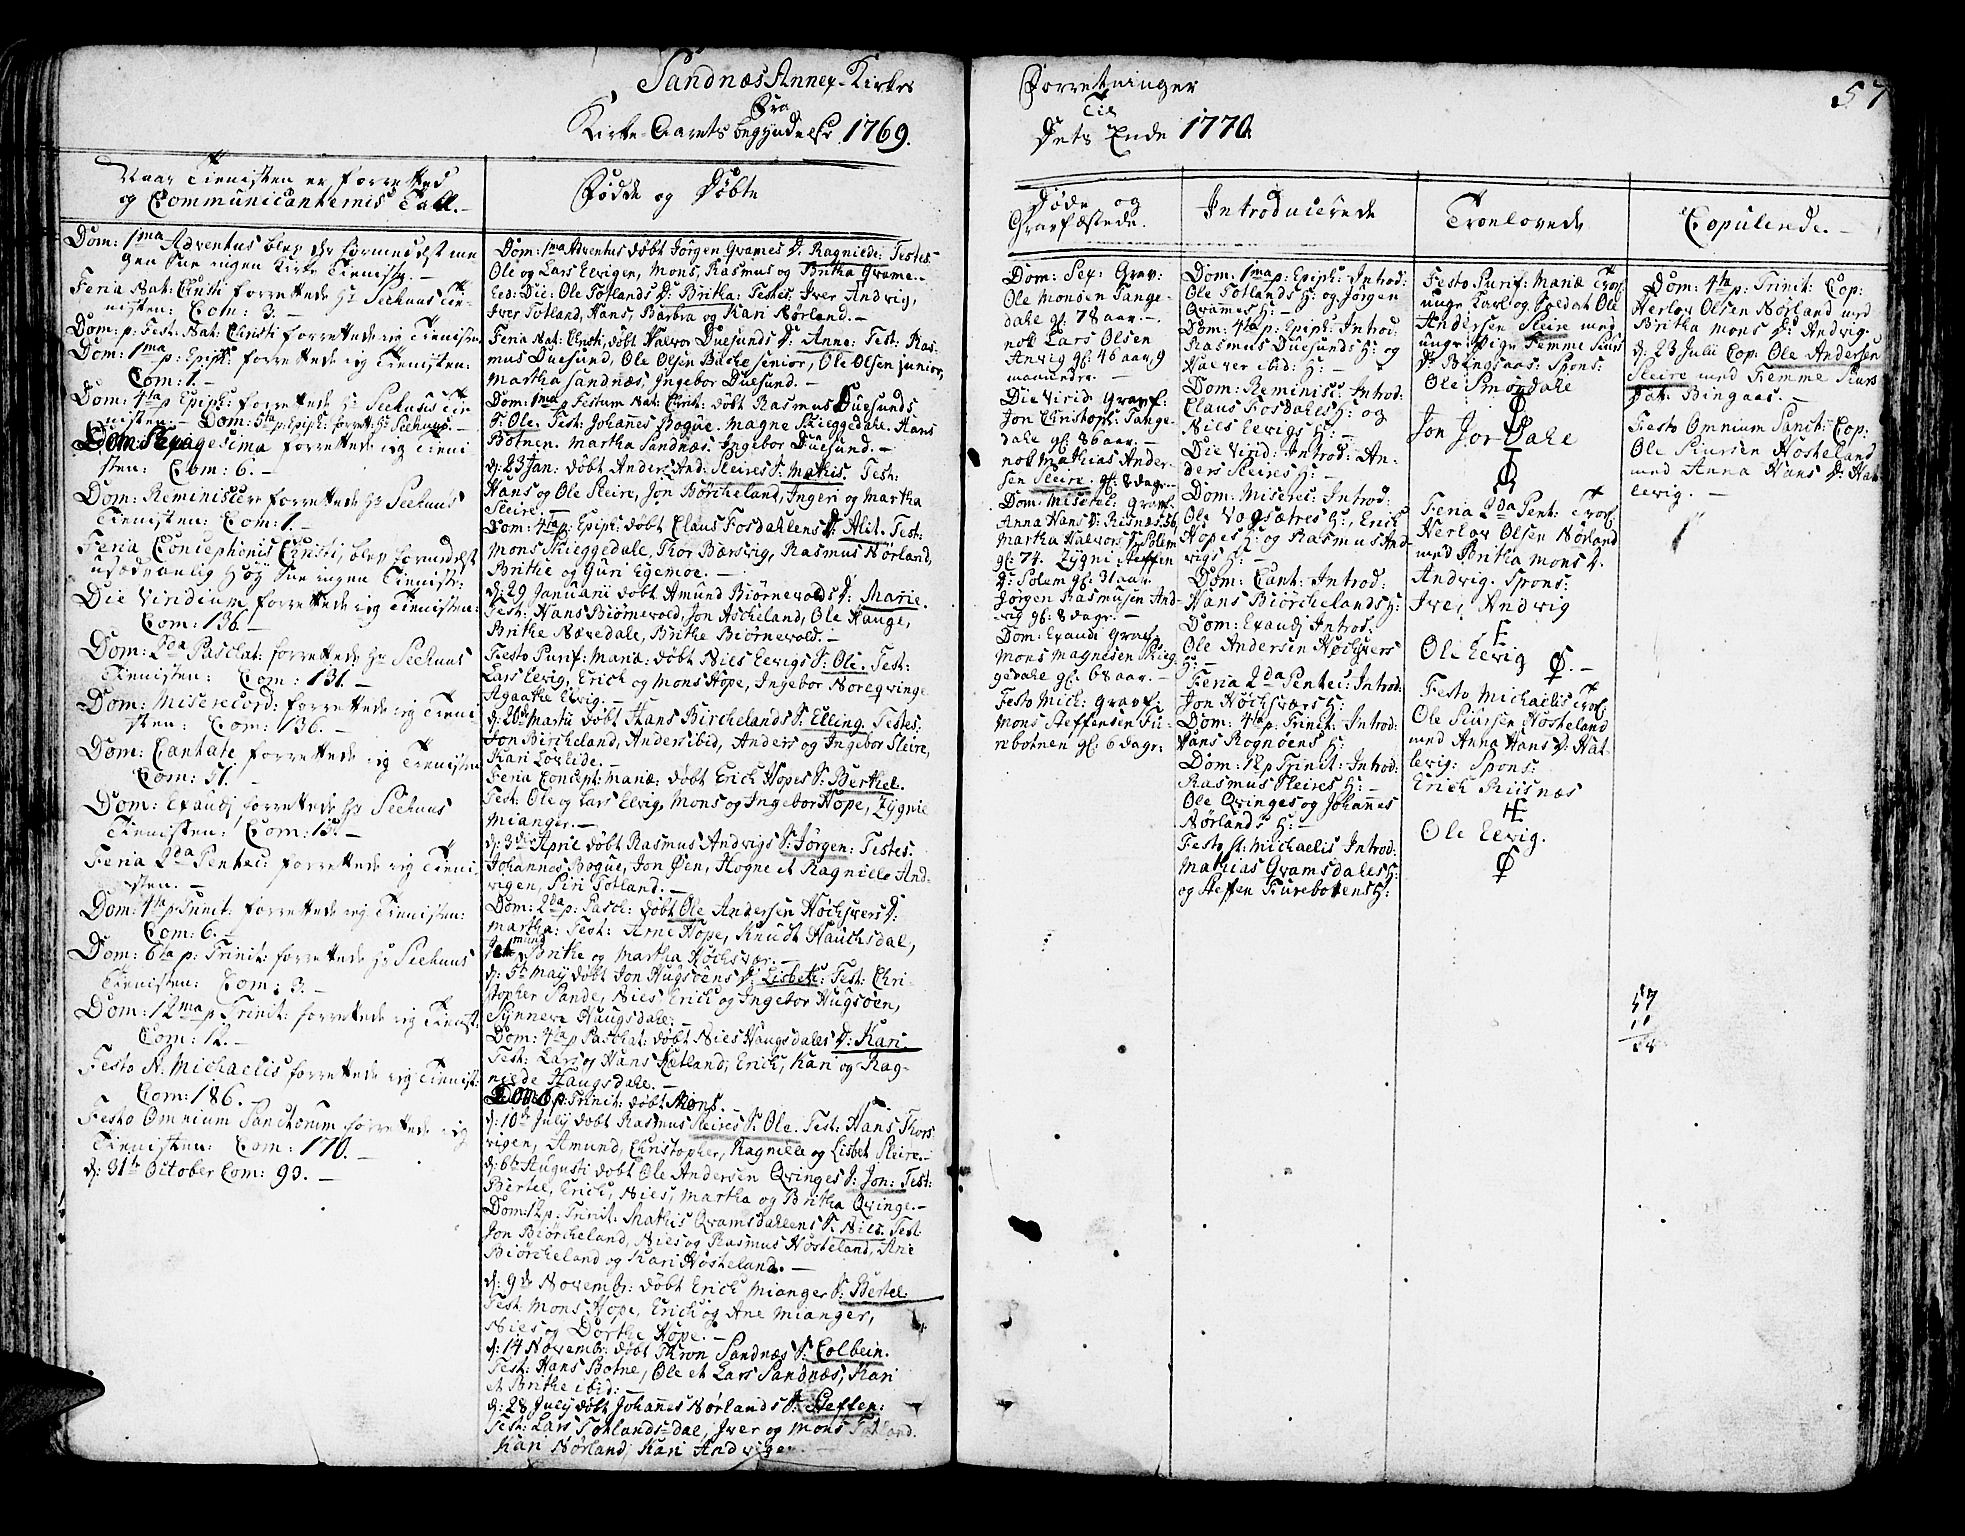 Sandnæs Annex-Kirkes
Fra
Kirke-Aarets begyndelse 1769.
Naar Tienisten er forretted
og Communicanternis Tall.-
Fødde og Døbte
Dom: 1ma Adventus blev der formedelst me
gen Sne ingen Kirke Tieniste.-
Feria Nat: Christi forrettede Hr Seehuus Tie-
nisten: Com: 3.-
Dom: p: Fest: Nat: Christi forrettede ieg Tienisten
Dom: 1ma p: Epiph: forrettede ieg Tienisten:
Com: 1.-
Dom: 4ta p: Epiph: forrettede Hr Seehuus Tie
nisten.- Dom: 5ta p: Epiph: forret: Hr Seehuus.-
Dom: Sexagesima forrettede ieg Tieni
sten: Com: 6.-
Dom: Reminiscere forrettede Hr Seehuus
Tienisten: Com: 1.-
Feria Conceptionis Christi, blev formedelst
usædvanlig Høy Sne ingen Tieniste.
Die Viridium forrettede ieg Tienisten:
Com: 136.-
Dom: 2da Paschat: forrettede Hr Seehuus
Tienisten: Com: 131.-
Dom: Misericord: forrettede ieg Tieni
sten: Com: 136.-
Dom: Cantate forrettede ieg Tienisten
Com: 51.-
Dom: Exaudj forrettede Hr Seehuus
Tienisten: Com: 15.-
Feria 2da Pentec: forrettede ieg Tieni
sten.-
Dom: 4ta p Trinit: forrettede ieg Tienisten:
Com: 6.-
Dom: 6ta p: Trinit: forrettede Hr Seehuus
Tienisten: Com: 3.-
Dom: 12ma p Trinit: forrettede ieg Tienist:
Com: 12.-
Festo St. Michaelis forrettede ieg Tienist:
Com: 186.-
Festo Omnium Sanctorum forrettede ieg
Tienisten: Com: 170.-
d: 31te October Com: 93.-
Dom: 1ma Adventus døbt Jørgen Qvames D: Ragnilde: Testes:
Ole og Lars Elvigen, Mons, Rasmus og Britha Qvame.-
Eed: Die: Ole Totlands D: Britha: Testes: Iver Andvig,
Iver Totland, Hans, Barbra og Kari Nørland.-
Feria Nat: Christi, døbt Halvor Duesunds D: Anne: Test: Ras-
mus Duesund, Ole Olsen Bache senior, Ole Olsen junior,
Martha Sandnæs, Ingebor Duesund.-
Dom: 1ma p Festum Nat: Christ: døbt Rasmus Duesunds
S: Ole. Test: Johannes Bogne, Magne Skieggedale, Hans
Botnen, Martha Sandnæs, Ingebor Duesund.-
d: 23 Jan: døbt Anders And: Sleires S: Mathis. Test:
Hans og Ole Sleire, Jon Børcheland, Ingeri og Martha
Sleire.-
Dom: 4ta p: Epiph: døbt Claus Fosdahlens D: Alit: Test:
Mons Skieggedale, Thor Bærsvig, Rasmus Nørland,
Brithe og Guri Egemoe.-
d: 29 Januarii døbt Amund Biørnevolds D: Marie.
Test: Hans Biørnevold, Jon Ascheland, Ole Hauge,
Brithe Nævedale, Brithe Biørnevold.-
Festo Purif: Mariæ: døbt Niels Elvigs S: Ole. Test:
Lars Elvig, Erich og Mons Hope, Ingebor Noreqvinge
Agaathe Elvig.-
d: 26de Martii døbt Hans Birchelands S: Elling. Testes:
Jon Bircheland, Anders ibid, Anders og Ingebor Sleire,
Kari Loxlide.-
Feria Concept: Mariæ: døbt Erich Hopes S: Berthel.
Test: Ole og Lars Elvig, Mons og Ingebor Hope, Zygnie
Mianger.-
d: 3die Aprie døbt Rasmus Andvigs S: Jørgen: Testes:
Johannes Bogne, Jon Øen, Hogne et Ragnille And-
vigen, Siri Totland.-
Dom: 2da p: Pasc: døbt Ole Andersen Høchsvers D:
Martha: Test: Arne Hope, Knudt Hauchsdal,
Brithe og Martha Høchsvær.-
d: 5te May døbt Jon Hugsøens D: Lisbeth: Test: Chri-
stopher Sande, Niels Erich og Ingebor Hugsøen,
Synneve Haugsdale.-
Dom: 4ta p Paschat: døbt Niels Haugsdales D: Kari.
Test: Lars og Hans Kætland, Erich, Kari og Rag-
nilde Haugsdale.-
Dom: 6 p: Trinit: døbt Mons.
d: 10de July døbt Rasmus Sleires S: Ole. Test: Hans Thors
vigen, Amund, Christopher, Ragnille og Lisbet Sleire.-
d: 6te Augusti døbt Ole Andersen Qvinges S: Jon: Test:
Bertel, Erich, Niels, Martha og Britha Qvinge.-
Dom: 12 p: Trinit: Mathis Qvamsdalens S: Niels. Test:
Jon Biørcheland, Niels og Rasmus Hosteland, Arie
Biørcheland og Kari Høsteland.-
d: 9de Novembr: døbt Erich Mianger S: Bertel.
Test: Mons Hope, Erich og Ane Mianger,
Niels og Dorthe Hope.-
d: 14 Novembr: døbt Thron Sandnæs S: Colbein.
Test: Hans Botne, Ole et Lars Sandnæs, Kari
et Brithe ibid:-
d: 28 July døbt Johannes Nørlands S: Steffen:
Test: Lars Totlands-dal, Iver og Mons Totland.
Kari Nørland, Kari Andvigen.-
Forretninger
Til
Dets Ende 1770.
57
Døde og
Gravfæstede.
Introducerede
Trolovede
Copulerede.-
Dom: Sex: Grav:
Ole Monsen Tange-
dale gl: 78 aar.-
nok Lars Olsen
Anvig gl: 46 aar, 9
maaneder.-
Die Virid Gravf:
Jon Christoph: Tange-
dale gl: 86 aar.-
nok Mathias Ander-
sen Sleire. gl: 8 dage.-
Dom: Miseric: Gravf:
Anna Hans D: Risnæs. 56
Martha Halvors D: Solem
gl: 74. Zygni Steffen
D: Solem gl: 31 aar.
Jørgen Rasmusen And-
vig gl: 8 dage.-
Dom: Exaudi Gravf:
Mons Magnesen Skieg
gedale gl: 68 aar.-
Festo Mich: Gravf:
Mons Steffensen Fu-
rebotnen gl: 6 dage:
Dom: 1ma p: Epiph: Introd:
Ole Totlands H: og Jørgen
Qvames H:-
Dom: 4ta p: Epiph: Introd:
Rasmus Duesunds H: og
Halver ibid: H:-
Dom: Reminisc: Introd:
Claus Fosdales H: og
Niels Elvigs H:-
Die Virid: Introd: An-
ders Sleires H:-
Dom: Miseric: Introd:
Ole Vogsætres H:, Erich
Hopes H: og Rasmus And-
vigs H:-
Dom: Cant: Introd:
Hans Biørchelands H:
Dom: Exaudj Introd:
Ole Andersen Høchsvers
H:-
Feria 2da Pentec: Introd:
Jon Høchsværs H:
Dom: 4ta p: Trinit: Introd
Hans Rognøens H:
Dom: 12 p Trinit: Introd:
Rasmus Sleires H:-
Ole Qvinges og Johannes
Nørlands H:-
Festo St. Michaelis Introd:
Mathias Qvamsdales H:
og Steffen Furebotens H:
Festo Purif: Mariæ Trol:
unge Karl og Soldat Ole
Andersen Sleire med
unge Pige Femme Siurs
D: Bingsaas: Spons:
Ole Smørdale
Jon Jordale
Feria 2da Pent: Trol:
Herlov Olsen Nørland
med Britha Mons D:
Andvig. Spons:
Iver Andvig
Ole Elvig
Festo Michaelis Trol:
Ole Siursen Hosteland
med Anna Hans D: Hat-
levig: Spons:
Erich Riisnæs
Ole Elvig.
Dom: 4ta p: Trinit: Cop:
Herlov Olsen Nørland med
Britha Mons D: Andvig.
d: 23 Julii Cop: Ole Andersen
Sleire med Femme Siurs
Dat: Bingaas.-
Festo Omnium Sanct: Cop:
Ole Siursen Hosteland
med Anna Hans D: Hat
levig.-
57